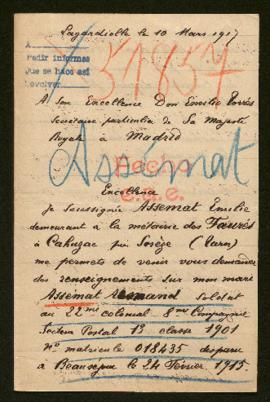 Lagardiolle le 10 Mars 1917
A
Pedir informes
Que se hace así
Devolver
31857
A Son Excellence Don Emilio Torrés
Secrétaire particulier de Sa Majesté
Royale à Madrid
Assemat
Hecho
Excellence
Je soussignée ASSEMAT Emilie
demeurant à la métairie des Faurés
à Cahuzac par Sorèze (Tarn)
me permets de venir vous demander
des renseignements sur mon mari
Assémat soldat
au 22me colonial 8me Compagnie
Secteur Postal 13 classe 1901
No matricule 018435 disparu
à Beauséjour le 24 Février 1915.